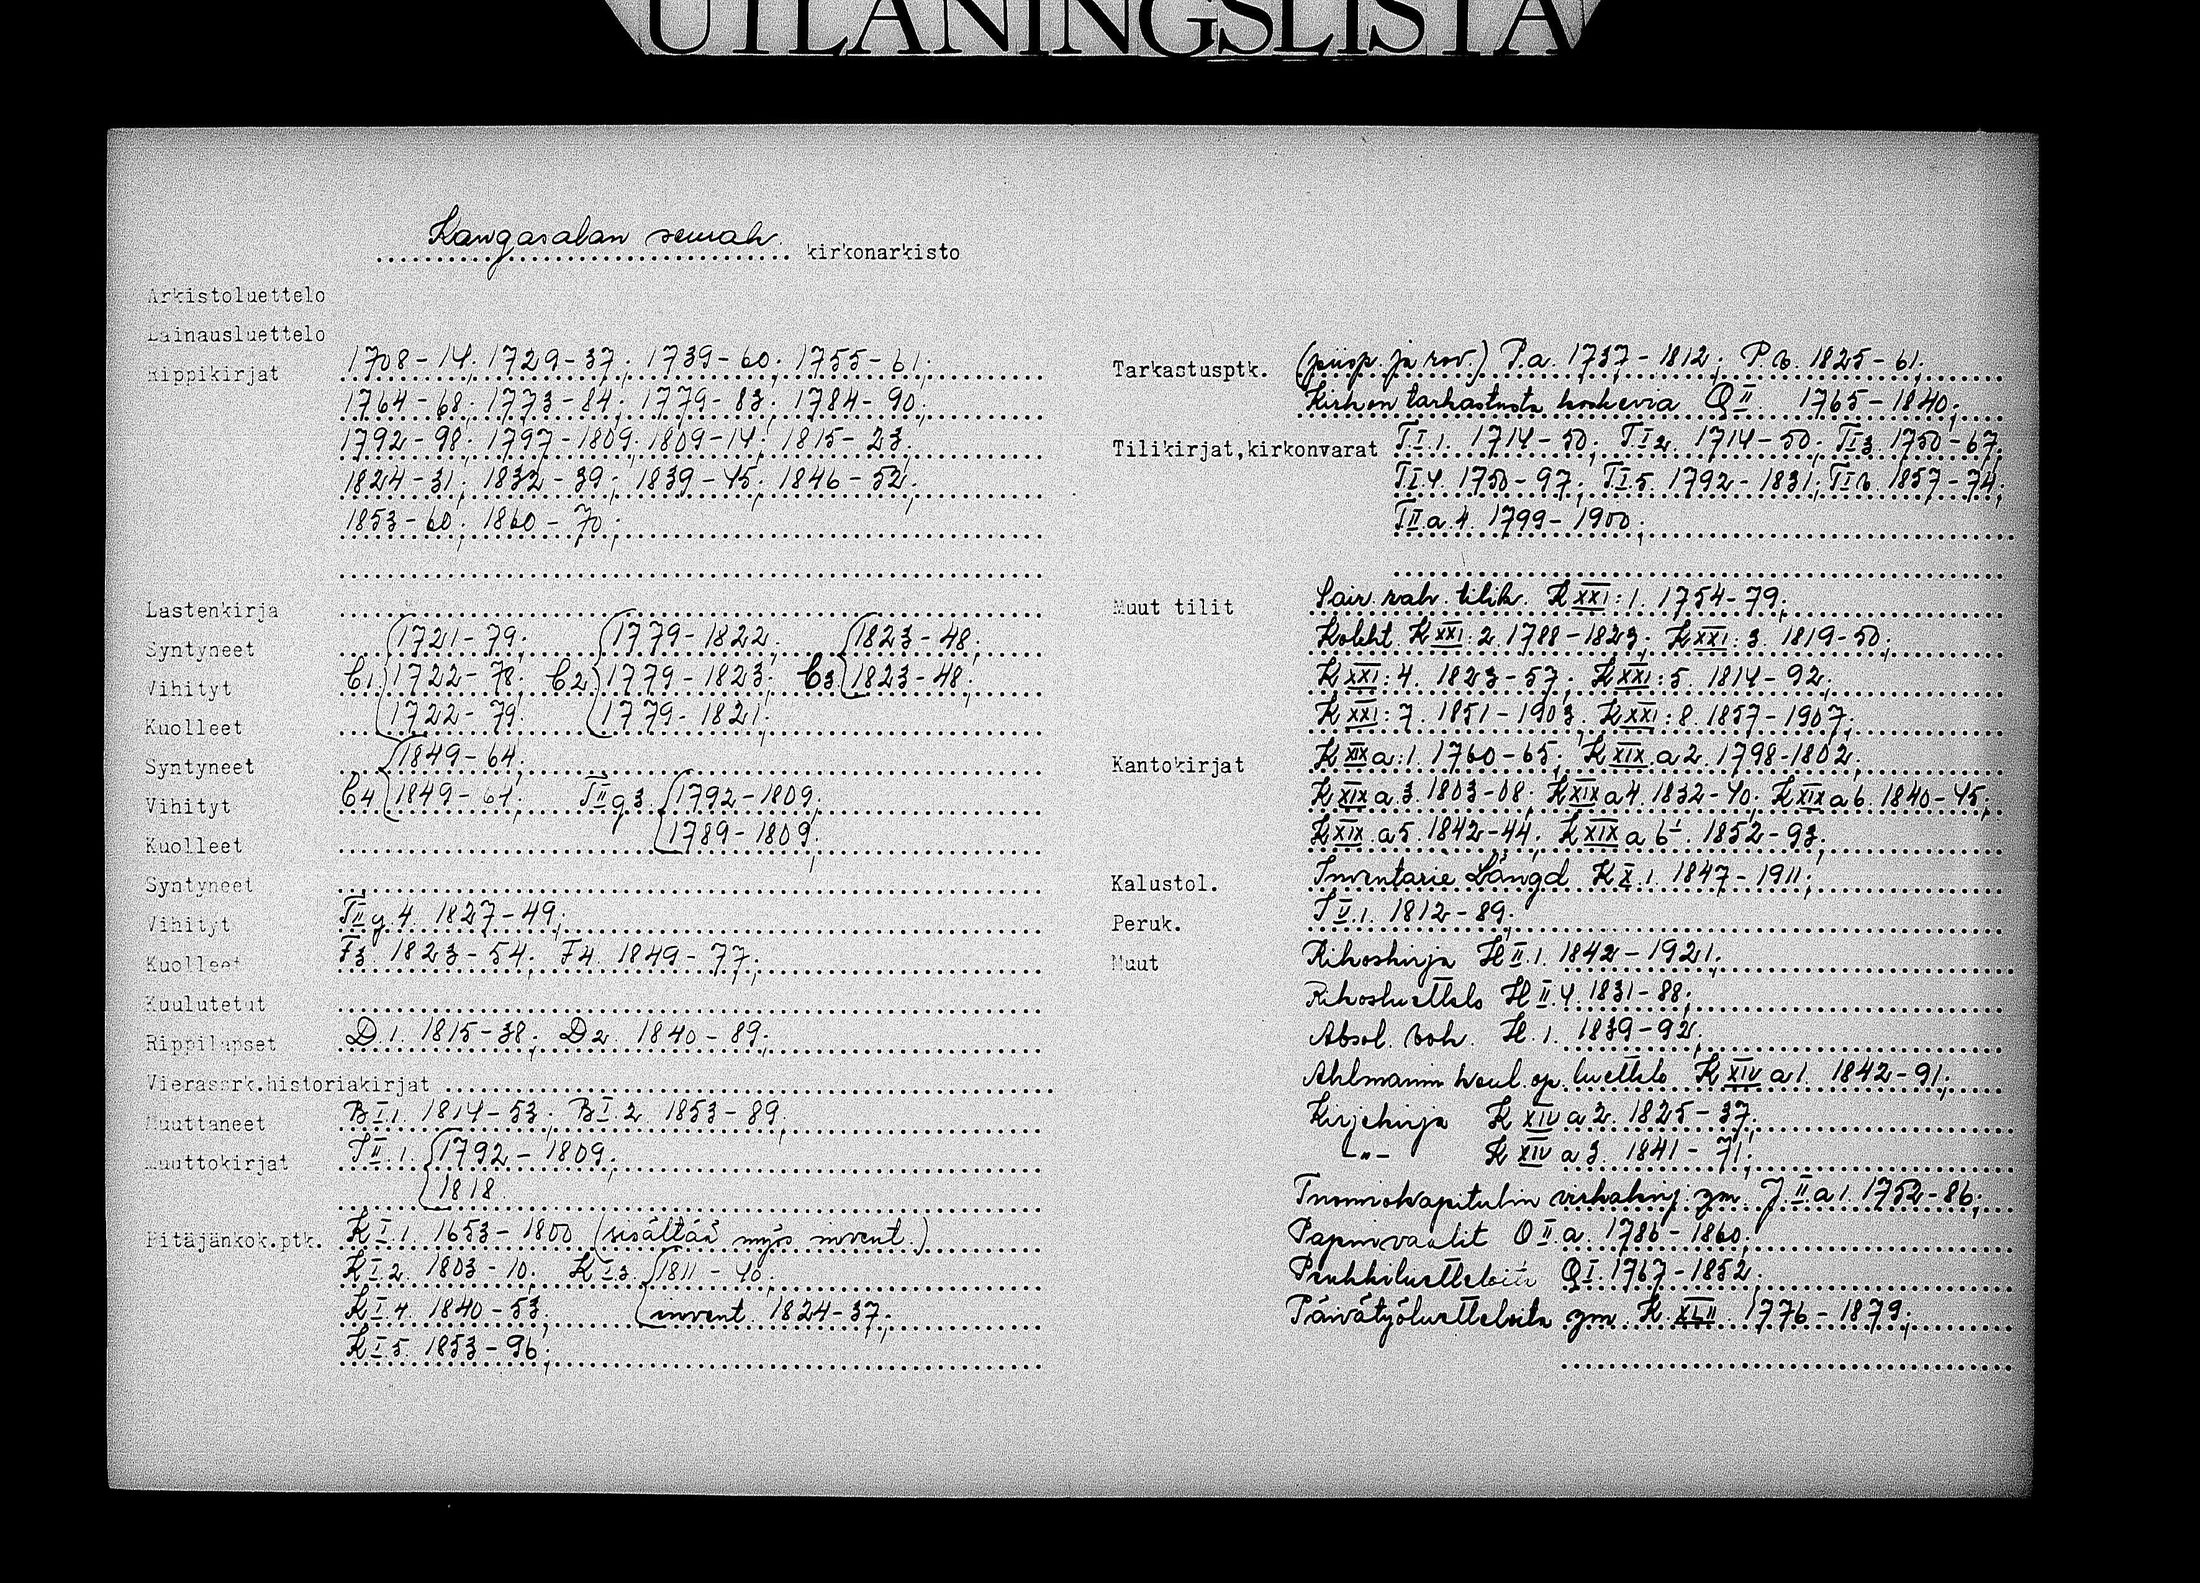 UTLÅNINGSLISTA
Kangasalan seurak. kirkonarkisto
Arkistoluettelo
Lainausluettelo
Rippikirjat 1708-14; 1729-37; 1739-60; 1755-61;
1764-68; 1773-84; 1779-83; 1784-90;
1792-98; 1797-1809; 1809-14; 1815-23;
1824-31; 1832-39; 1839-45; 1846-52;
1853-60; 1860-70;
Lastenkirja
Syntyneet 1721-79; 1779-1822; 1823-48;
Vihityt C1. 1722-78; C2 1779-1823; C3 1823-48;
Kuolleet 1722-79; 1779-1821;
Syntyneet 1849-64;
Vihityt C4 1849-61; TII g 3. 1792-1809;
Kuolleet 1789-1809;
Syntyneet
Vihityt TII g. 4. 1827-49;
Kuolleet F3. 1823-54; F4. 1849-77;
Kuulutetut
Rippilapset D.1. 1815-38; D2. 1840-89;
Vierassrk.historiakirjat
Muuttaneet BI.1. 1814-53; BI.2. 1853-89;
Muuttokirjat II.1. 1792-1809;
1818.
Pitäjänkok.ptk. KI.1. 1653-1800 (sisältää myös invent.)
KI.2. 1803-10; KI.3. 1811-40;
KI.4. 1840-53; invent. 1824-37;
KI.5. 1853-96;
Tarkastusptk. (piisp. ja rov.) P.a. 1737-1812; P.b. 1825-61;
Kirkon tarkastusta koskevia QII 1765-1840;
Tilikirjat,kirkonvarat TI.1. 1714-50; TI.2. 1714-50; TI.3. 1750-67;
TI.4. 1750-97; TI.5. 1792-1831; TI.6. 1857-74;
TII.a.4. 1799-1900;
Muut tilit Sair.rah. tilik. KXXI:1. 1754-79;
Kolekt KXXI:2. 1788-1823; KXXI:3. 1819-50;
KXXI:4. 1823-57; KXXI:5. 1814-92;
KXXI:7. 1851-1903; KXXI:8. 1857-1907;
Kantokirjat KXIXa:1. 1760-65; KXIX.a2. 1798-1802;
KXIXa.3. 1803-08; KXIXa4. 1832-40; KXIXa6. 1840-45;
KXIX.a5. 1842-44; KXIXa6. 1852-93;
Kalustol. Inventarie Längd KX.1. 1847-1911;
Peruk. IV.1. 1812-89;
Muut Rikoskirja HII.1. 1842-1921;
Rikosluettelo HII.4. 1831-88;
Absol. bok. H.1. 1839-92;
Ahlmannin koul.op. luettelo KXIV a1. 1842-91;
Kirjekirja KXIV a2. 1825-37;
-"- KXIV a3. 1841-71;
Tuomiokapitulin virkakirj. ym. J.II.a1. 1752-86;
Papinvaalit OII.a. 1786-1860;
Penkkiluetteloita QI. 1767-1852;
Päivätyöluetteloita ym. K XLII. 1776-1879;